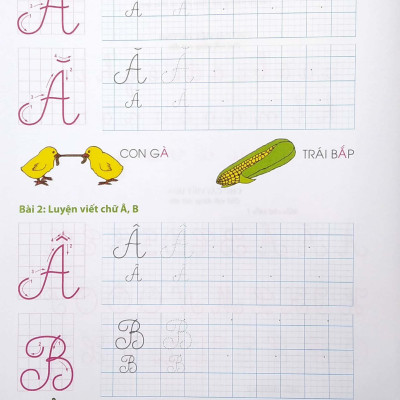 A
Ă Ă Ă
Ă Ă
CON GÀ
TRÁI BẮP
Bài 2: Luyện viết chữ Â, B
Â Â Â
Â Â
B B B
B B